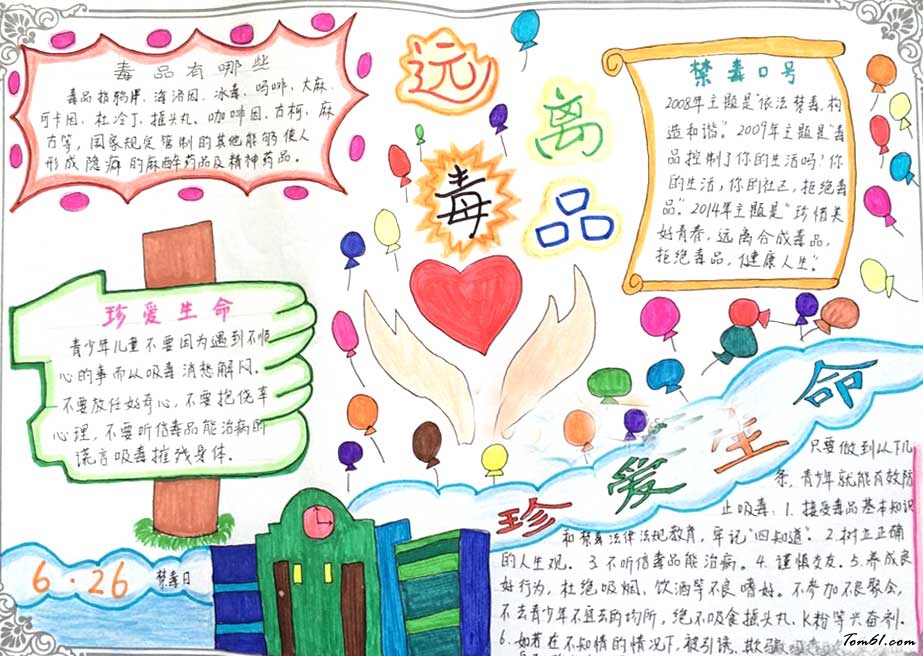 毒品有哪些
毒品指鸦片、海洛因、冰毒、吗啡、大麻、
可卡因、杜冷丁、摇头丸、咖啡因、古柯、麻
古等，国家规定管制的其他能够使人
形成隐癖的麻醉药品及精神药品。
远
离
毒
品
禁毒口号
2008年主题是“依法禁毒，构
造和谐”。2009年主题是“毒
品控制了你的生活吗？你
的生活，你的社区，拒绝毒
品”。2014年主题是“珍惜美
好青春，远离合成毒品，
拒绝毒品，健康人生”。
珍爱生命
青少年儿童不要因为遇到不顺
心的事而以吸毒消愁解闷。
不要放任好奇心，不要抱侥幸
心理，不要听信毒品能治病的
谎言吸毒摧残身体。
珍爱生命
只要做到以下几
条，青少年就能有效防
止吸毒：1.接受毒品基本知识
和禁毒法律法规教育，牢记“四知道”。2.树立正确
的人生观。3.不听信毒品能治病。4.谨慎交友。5.养成良
好行为，杜绝吸烟、饮酒等不良嗜好。不参加不良聚会，
不去青少年不宜去的场所，绝不吸食摇头丸、K粉等兴奋剂。
6.如若在不知情的情况下，被引诱、欺骗吸毒
6·26 禁毒日
Tom61.com